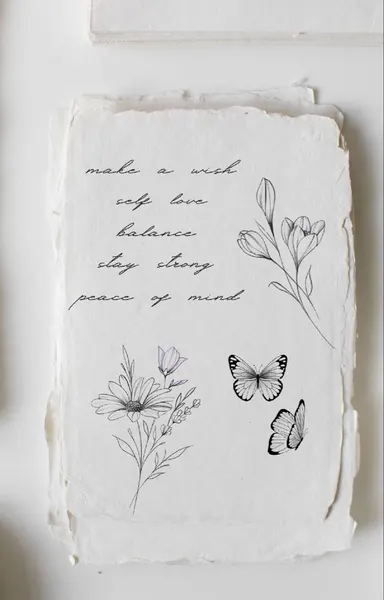 make a wish
self love
balance
stay strong
peace of mind